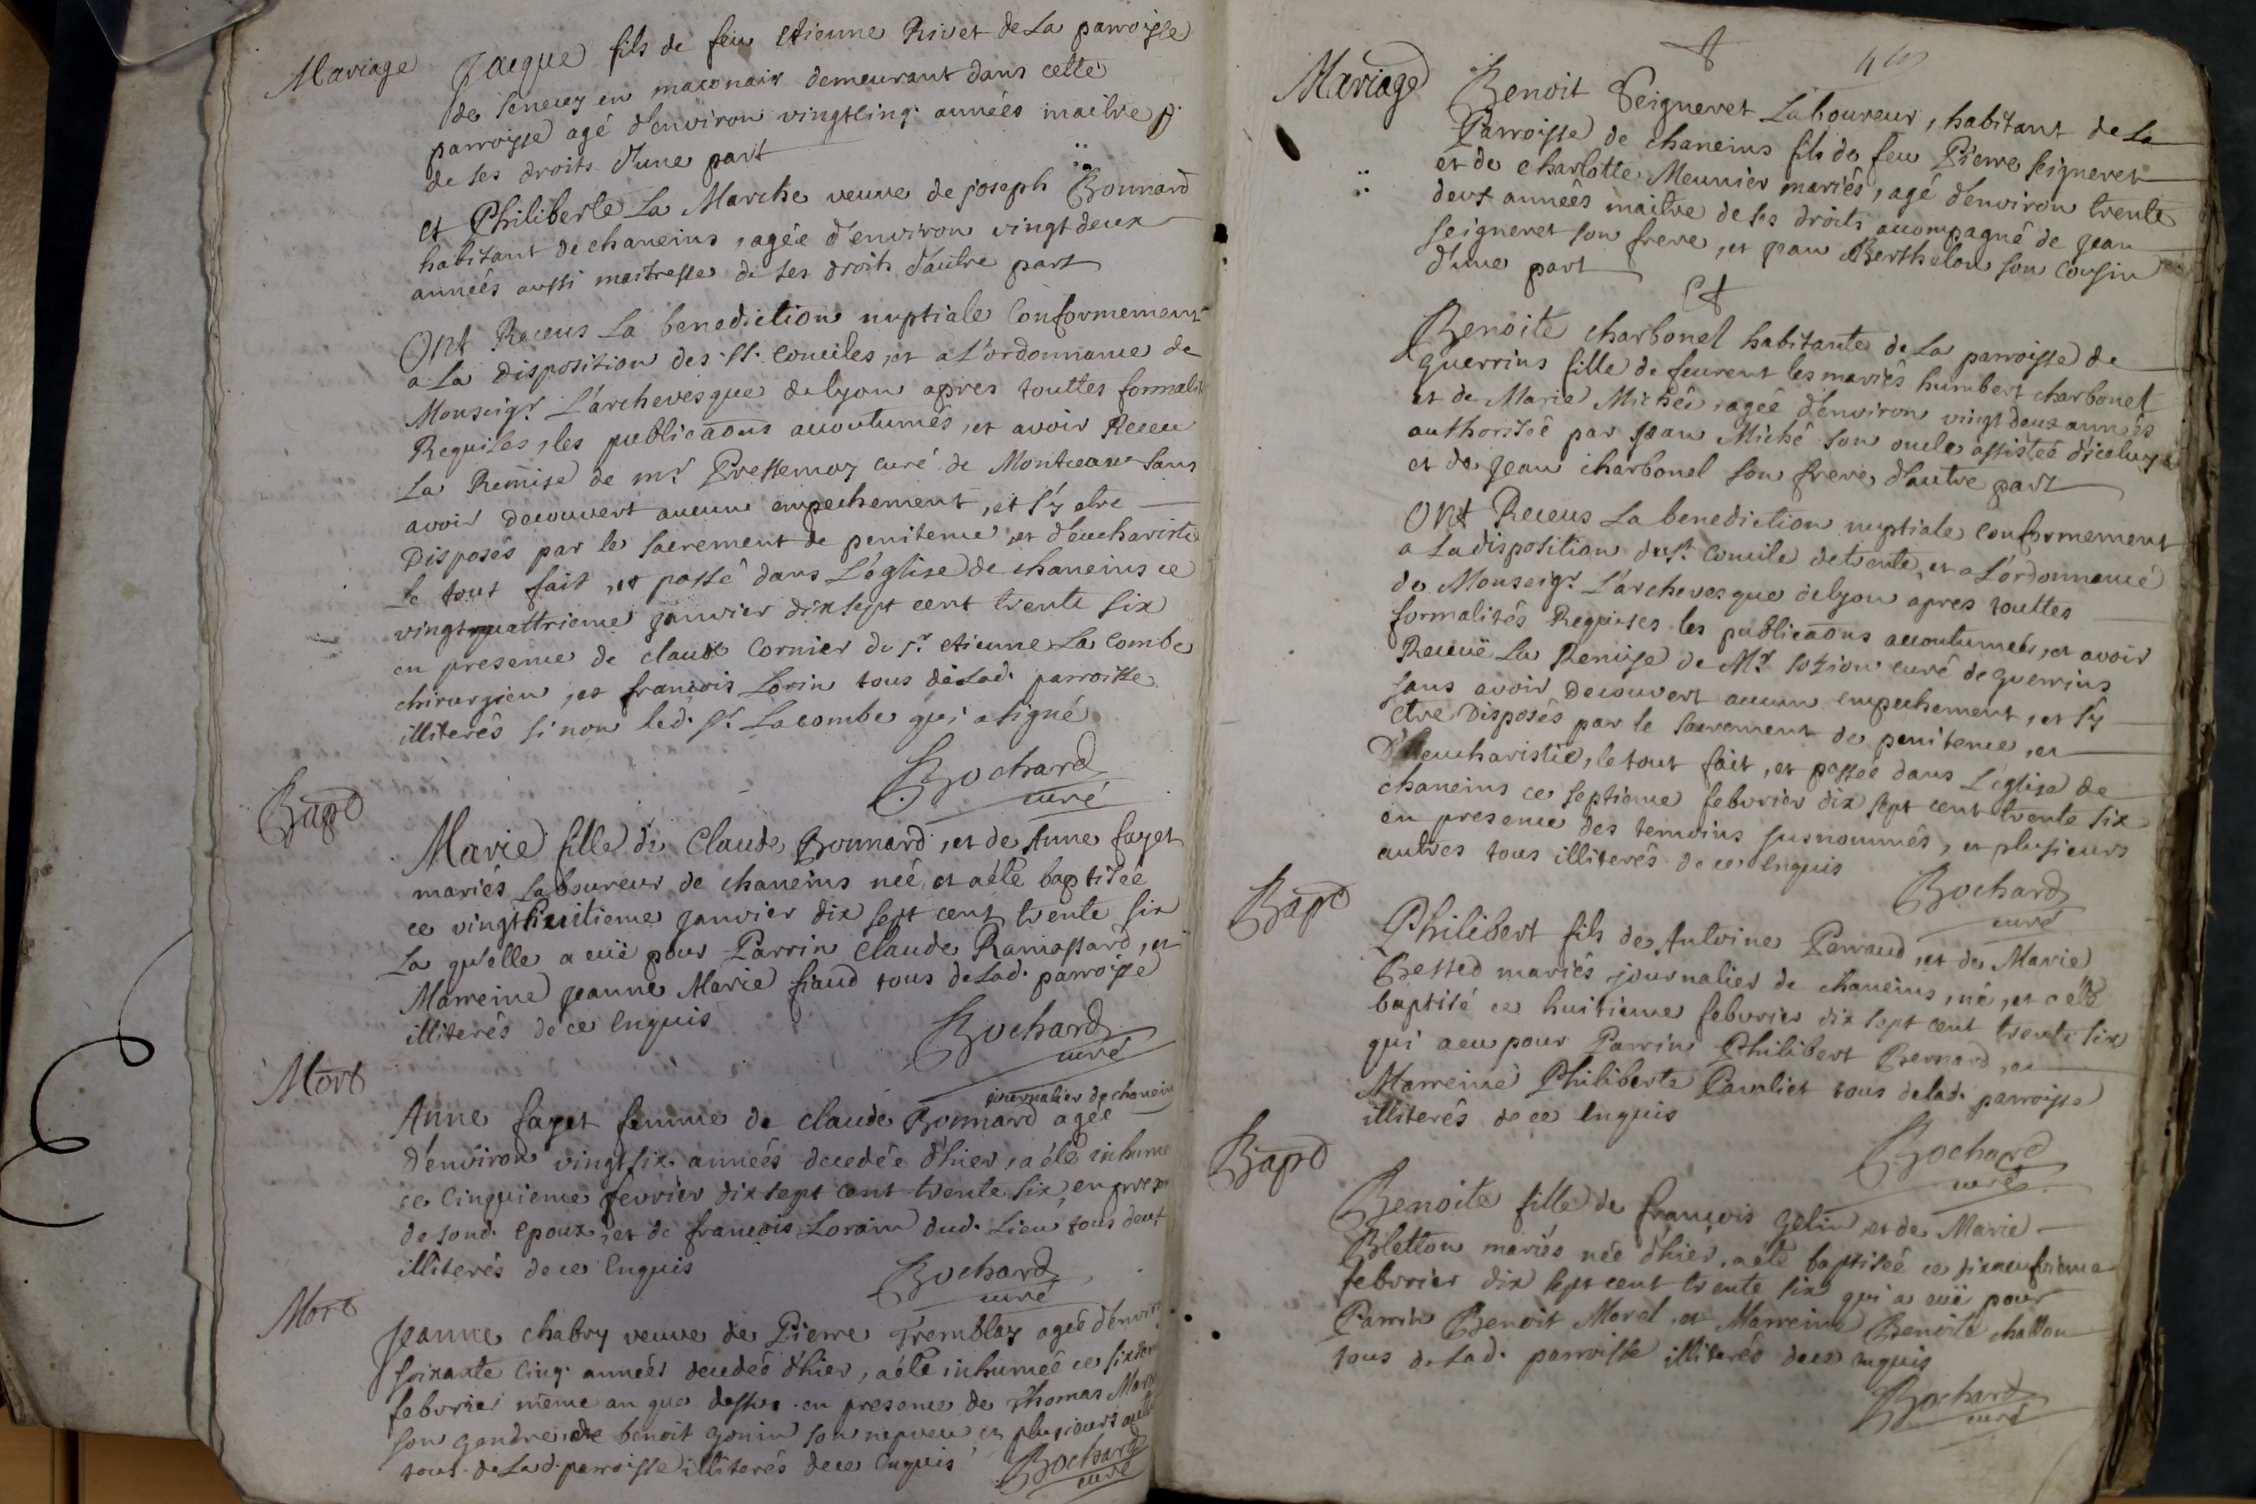 Mariage
Jacque fils de feu Etienne Rivet de La parroisse
de senecey en maconnais demeurant dans cette
parroisse agé d'environ vingtcinq années maitre
de ses droits d'une part
et Philiberte La Marche veuve de joseph Bonnard
habitant de chaneins, agée d'environ vingt deux
années aussi maitresse de ses droits d'autre part
Ont Receus La benediction nuptiale Conformement
a La disposition des sts. conciles, et a L'ordonnance de
Monseigr. L'archevesque de lyon apres touttes formalit
Requises, les publicaõns accoutumés, et avoir Receu
La Remise de mr. Pressemoz curé de Montceaux sans
avoir decouvert aucun empechement, et s'y etre
Disposés par le sacrement de penitence, et d'eucharistie
Le tout fait, et passé dans L'eglise de chaneins ce
vingtquattrieme janvier dixsept cent trente six
en presence de claude Cornier du sr. etienne La Combe
chirurgien, et francois Lorin tous de Lad. parroisse
illiterés si non led. sr. Lacombe qui a signé
Bochard
curé
Bapt
Marie fille de Claude Bonnard, et de Anne fayet
mariés Laboureur de chaneins née, et a été baptisée
ce vingthuitieme janvier dix sept cent trente six
La qu'elle a eüe pour Parrin Claude Ramassard, et
Marreine jeanne Marie fiaud tous de Lad. parroisse
illiterés de ce Enquis
Bochard
curé
Mort
journalier de chanein
Anne fayet femme de claude Bonnard agée
d'environ vingtsix années decedée d'hier, a été inhumé
ce Cinquieme fevrier dixsept cent trente six, en prese
de sond. epoux, et de francois Lorain dud. Lieu tous deux
illiterés de ce Enquis
Bochard
curé
Mort
Jeanne chabry veuve de Pierre Tremblay agée d'envir
soixante Cinq années decedée d'hier, a été inhumée ce sixiem
febvrier même an que dessus en presence de Thomas Mor
son gendre, de benoit gonin son nepveu et plusieurs autre
tous de Lad. parroisse illiterés de ce Enquis
Bochard
curé
Mariage
Benoit Seigneret Laboureur, habitant de La
Parroisse de chaneins fils de feu Pierre seigneret
et de charlotte Meunier mariés, agé d'environ trente
deux années maitre de ses droits accompagné de jean
seigneret son frere, et jean Berthelon son Cousin
d'une part
Et
Benoite charbonel habitante de La parroisse de
guerrins fille de feurent les mariés humbert charbonel
et de Marie Miché, agée d'environ vingt deux années
authorisée par jean Miché son oncle assistée d'iceluy
et de jean charbonel son frere, d'autre part
Ont Receus La benediction nuptiale conformement
a La disposition du st. Concile de trente, et a L'ordonnance
de Monseigr. L'archevesque de lyon apres touttes
formalités Requises les publicaõns accoutumées, et avoir
Receuë La Remise de Mr. curé de guerrins
sans avoir decouvert aucun empechement, et s'y
etre Disposés par le sacrement de penitence, et
D'eucharistie, le tout fait, et passée dans L'eglise de
chaneins ce septieme febvrier dix sept cent trente six
en presence des temoins susnommés, et plusieurs
autres tous illiterés de ce Enquis
Bochard
curé
Bapt
Philibert fils de Antoine Perraud, et de Marie
mariés journalier de chaneins, né, et a été
baptisé ce huitieme febvrier dix sept cent trente six
qui a eu pour Parrin Philibert Bernard, et
Marreine Philiberte tous de lad. parroisse
illiterés de ce Enquis
Bochard
curé
Bapt
Benoite fille de françois gelin, et de Marie
Bletton mariés née d'hier, a été baptisée ce dixneufvieme
febvrier dix sept cent trente six qui a eüe pour
Parrin Benoit Morel, et Marreine Benoite challon
tous de Lad. parroisse illiterés de ce enquis
Bochard
curé